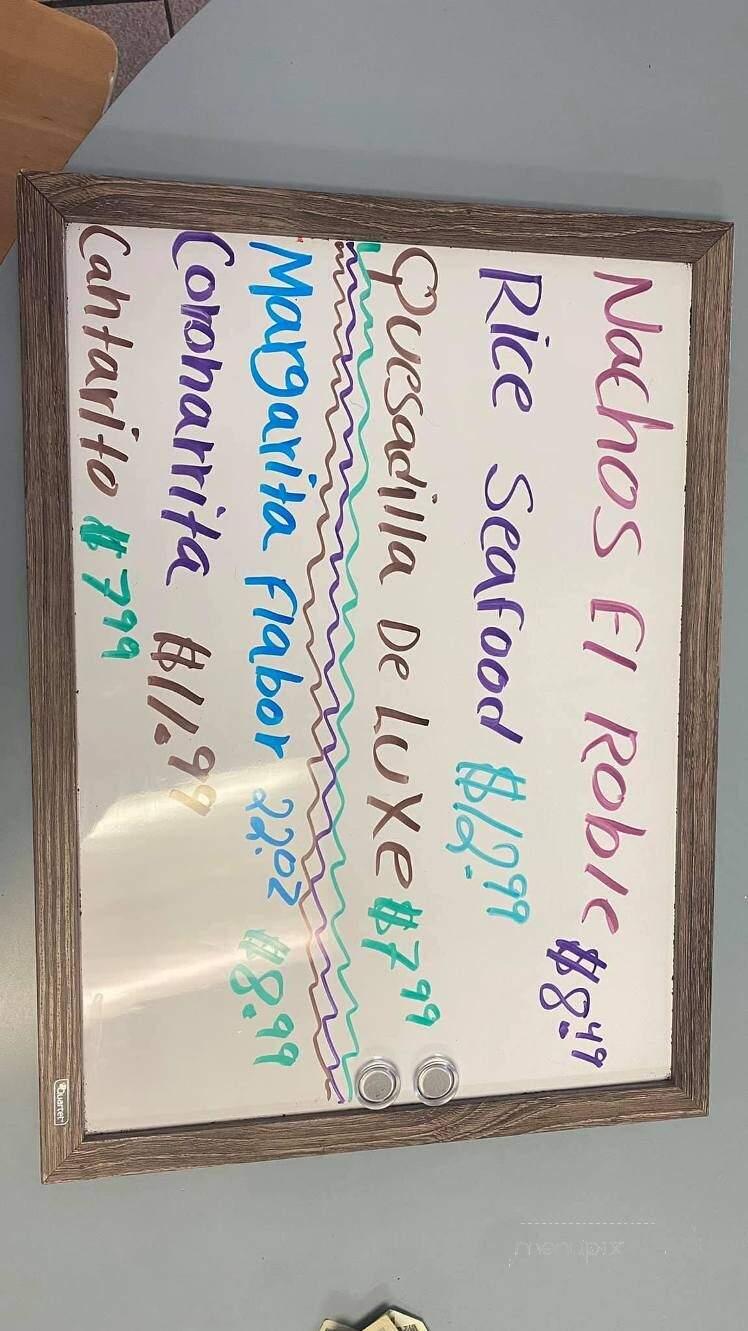 Nachos El Roble $8.49
Rice Seafood $12.99
Quesadilla De Luxe $7.99
Margarita Flabor 22.oz $8.99
Coronarrita $11.99
Cantarito $7.99
Quartet